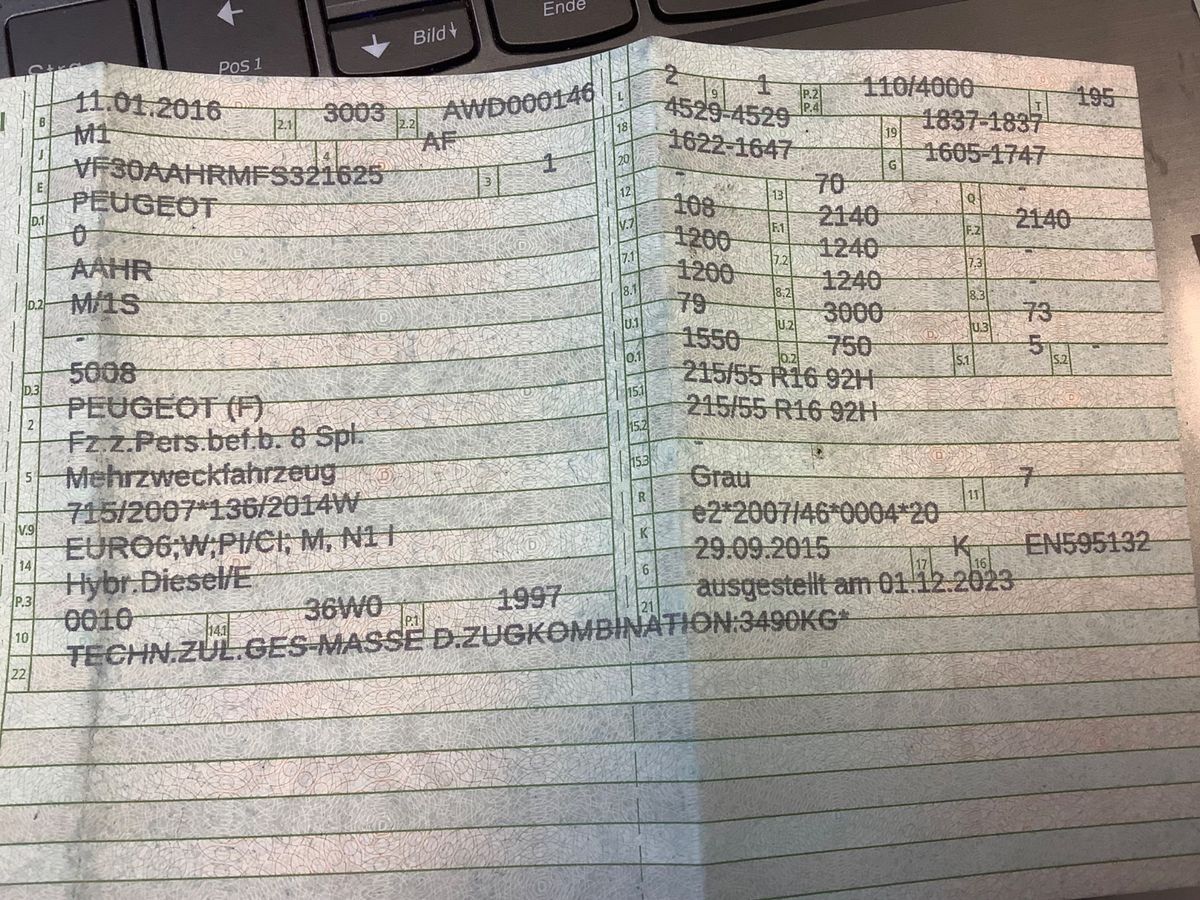 Ende
Bild
Strg
Pos 1
B 11.01.2016 2.1 3003 2.2 AWD000146
J M1 4 AF
E VF30AAHRMFS321625 3 1
D.1 PEUGEOT
0
D.2 AAHR
M/1S
-
D.3 5008
2 PEUGEOT (F)
5 Fz.z.Pers.bef.b. 8 Spl.
Mehrzweckfahrzeug
V.9 715/2007*136/2014W
14 EURO6;W;PI/CI; M, N1 I
P.3 Hybr.Diesel/E
10 0010 14.1 36W0 P.1 1997
22 TECHN.ZUL.GES-MASSE D.ZUGKOMBINATION:3490KG*
L 2 9 1 P.2 P.4 110/4000 T 195
18 4529-4529 19 1837-1837
20 1622-1647 G 1605-1747
12 - 13 70 Q -
V.7 108 F.1 2140 F.2 2140
7.1 1200 7.2 1240 7.3 -
8.1 1200 8.2 1240 8.3 -
U.1 79 U.2 3000 U.3 73
O.1 1550 O.2 750 S.1 5 S.2 -
15.1 215/55 R16 92H
15.2 215/55 R16 92H
15.3 -
R Grau 11 7
K e2*2007/46*0004*20
6 29.09.2015 17 K 16 EN595132
21 ausgestellt am 01.12.2023